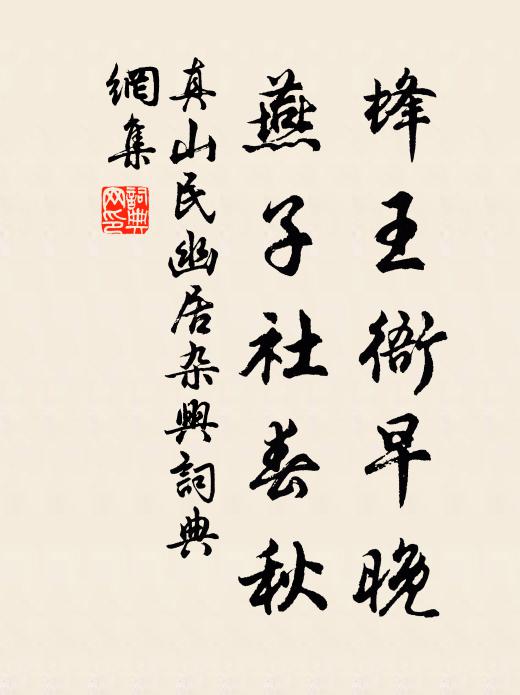 蜂王衙早晚
燕子社春秋
真山民幽居杂興詞典
網集
詞典網印